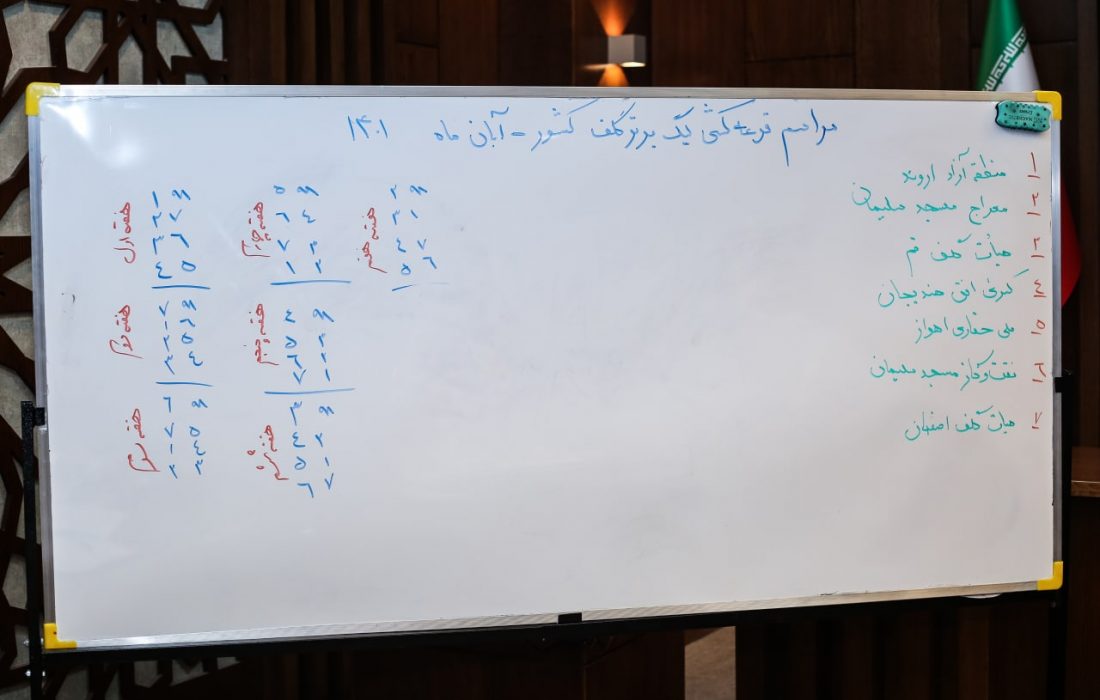 مراسم قرعه کشی لیگ برتر گلف کشور - آبان ماه ۱۴۰۱
۱ منطقه آزاد اروند
۲ معراج مسجد سلیمان
۳ هیأت گلف قم
۴ کبری افق هندیجان
۵ ملی حفاری اهواز
۶ نفت و گاز مسجد سلیمان
۷ هیأت گلف اصفهان
هفته اول
۱
۲ ۷
۳ ۶
۴ ۵
هفته دوم
۷
۱ ۶
۲ ۵
۳ ۴
هفته سوم
۶
۷ ۵
۱ ۴
۲ ۳
هفته چهارم
۵
۶ ۴
۷ ۳
۱ ۲
هفته پنجم
۴
۵ ۳
۶ ۲
۷ ۱
هفته ششم
۳
۴ ۲
۵ ۱
۶ ۷
هفته هفتم
۲
۳ ۱
۴ ۷
۵ ۶